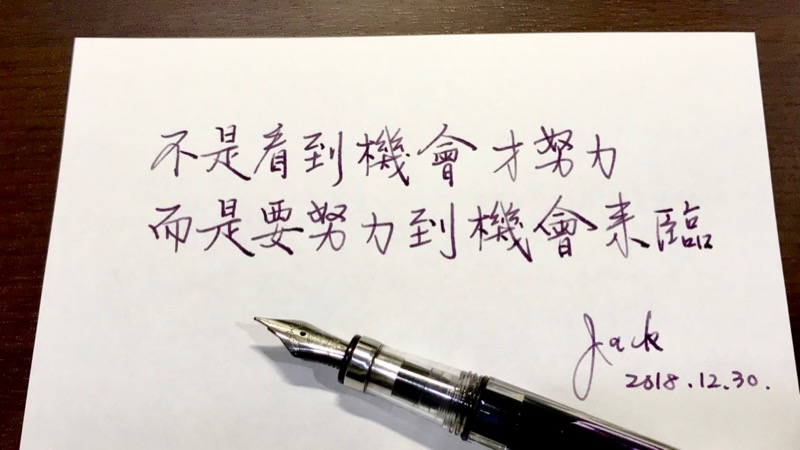 不是看到機會才努力
而是要努力到機會来臨
Jack
2018.12.30.